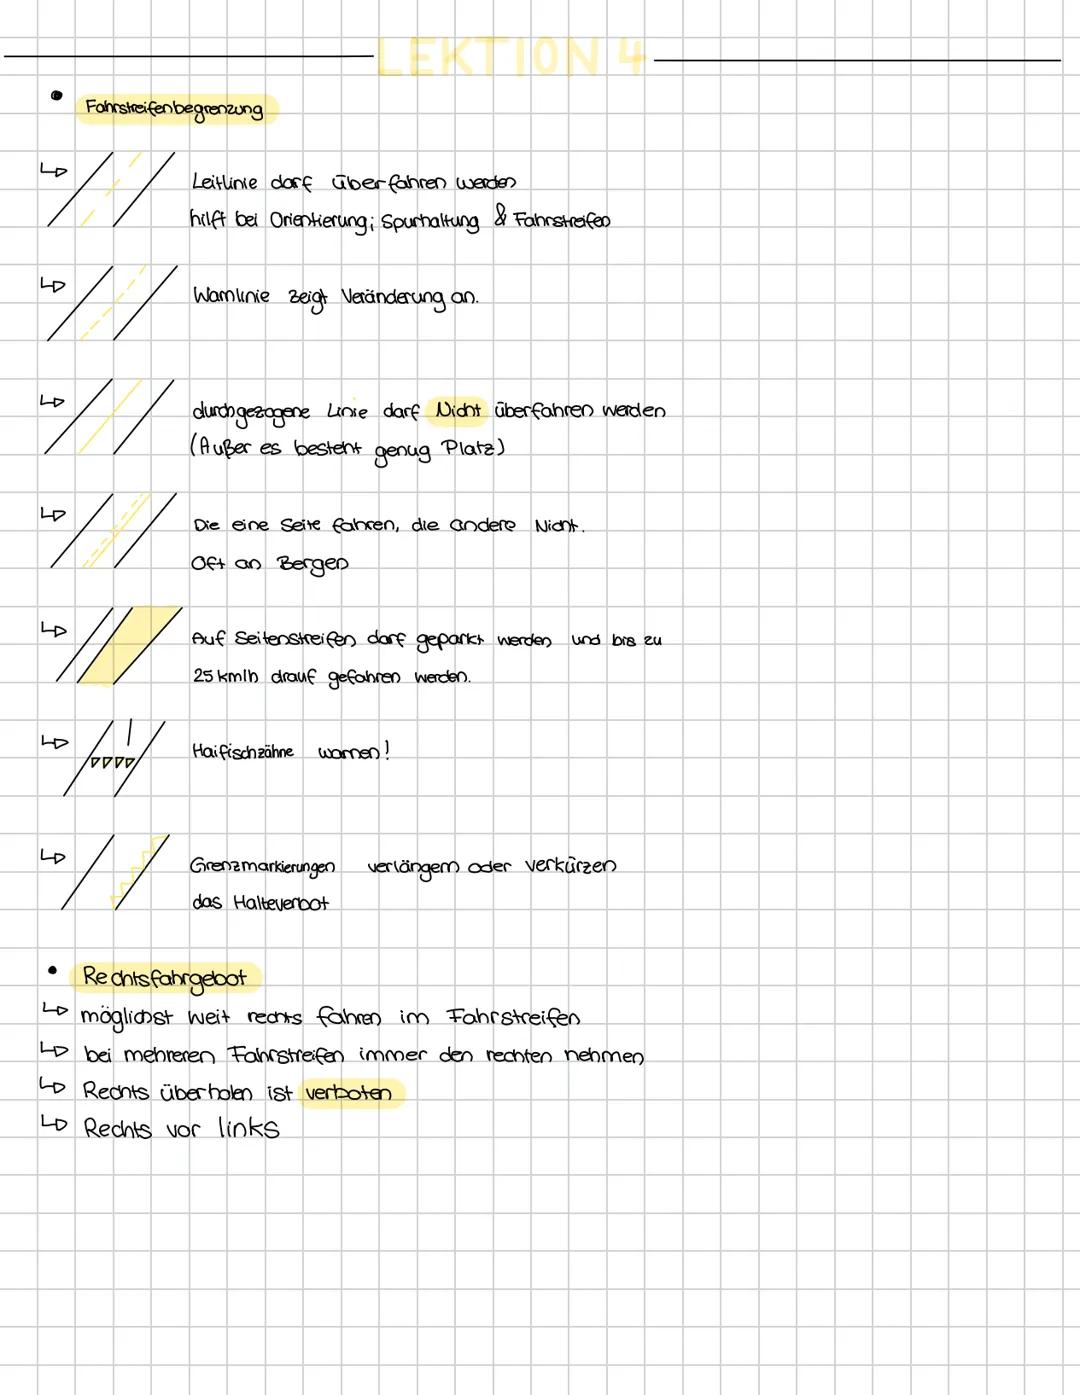 LEKTION 4
Fahrstreifenbegrenzung
Leitlinie darf überfahren werden
hilft bei Orientierung; Spurhaltung & Fahrstreifen
Warnlinie zeigt Veränderung an.
durchgezogene Linie darf Nicht überfahren werden
(Außer es besteht genug Platz)
Die eine Seite fahren, die andere Nicht.
Oft an Bergen
Auf Seitenstreifen darf geparkt werden und bis zu
25 km/h drauf gefahren werden.
Haifischzähne warnen!
Grenzmarkierungen verlängern oder verkürzen
das Halteverbot
Rechtsfahrgebot
möglichst weit rechts fahren im Fahrstreifen
bei mehreren Fahrstreifen immer den rechten nehmen
Rechts überholen ist verboten
Rechts vor links